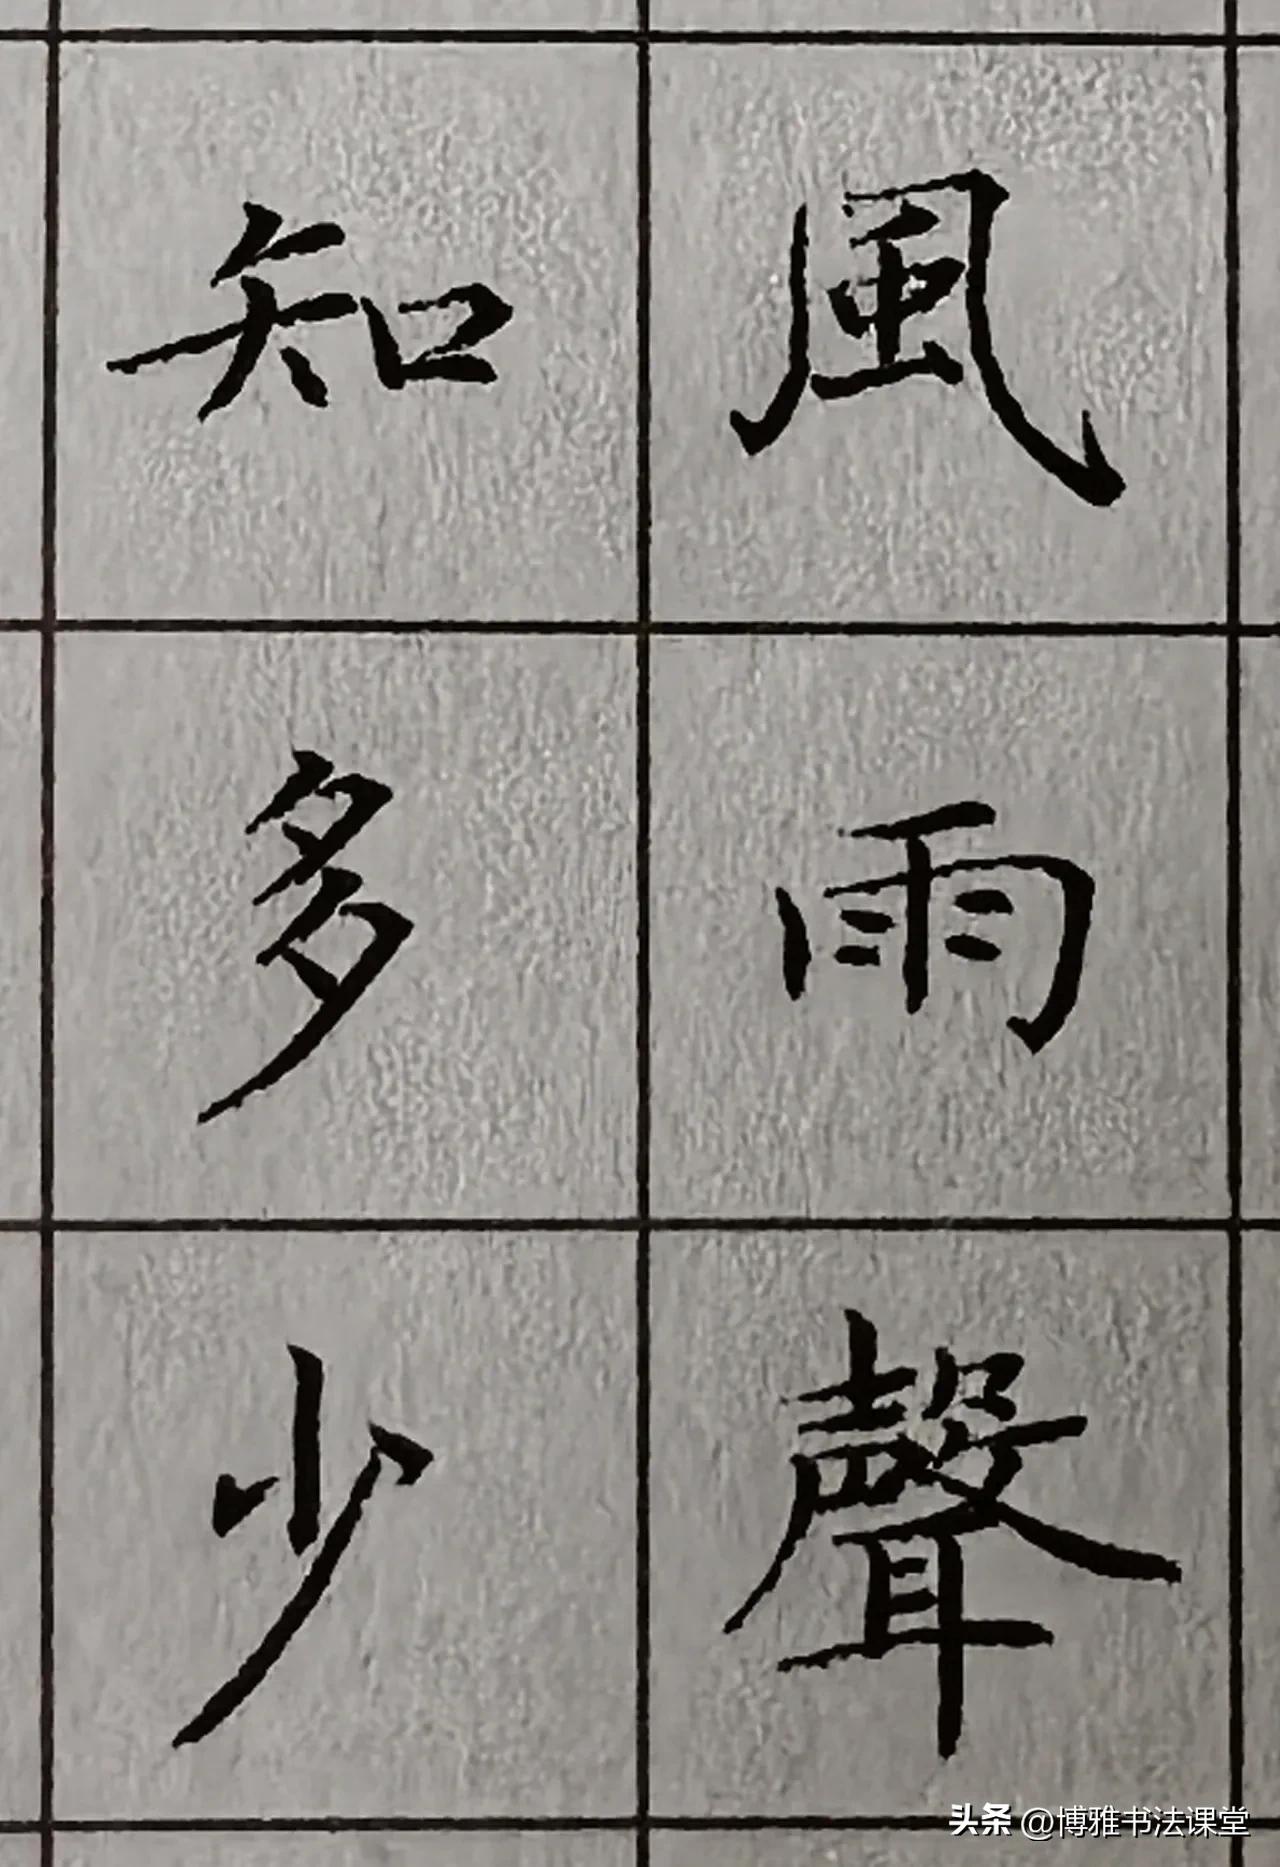 風雨聲
知多少
头条 @博雅书法课堂